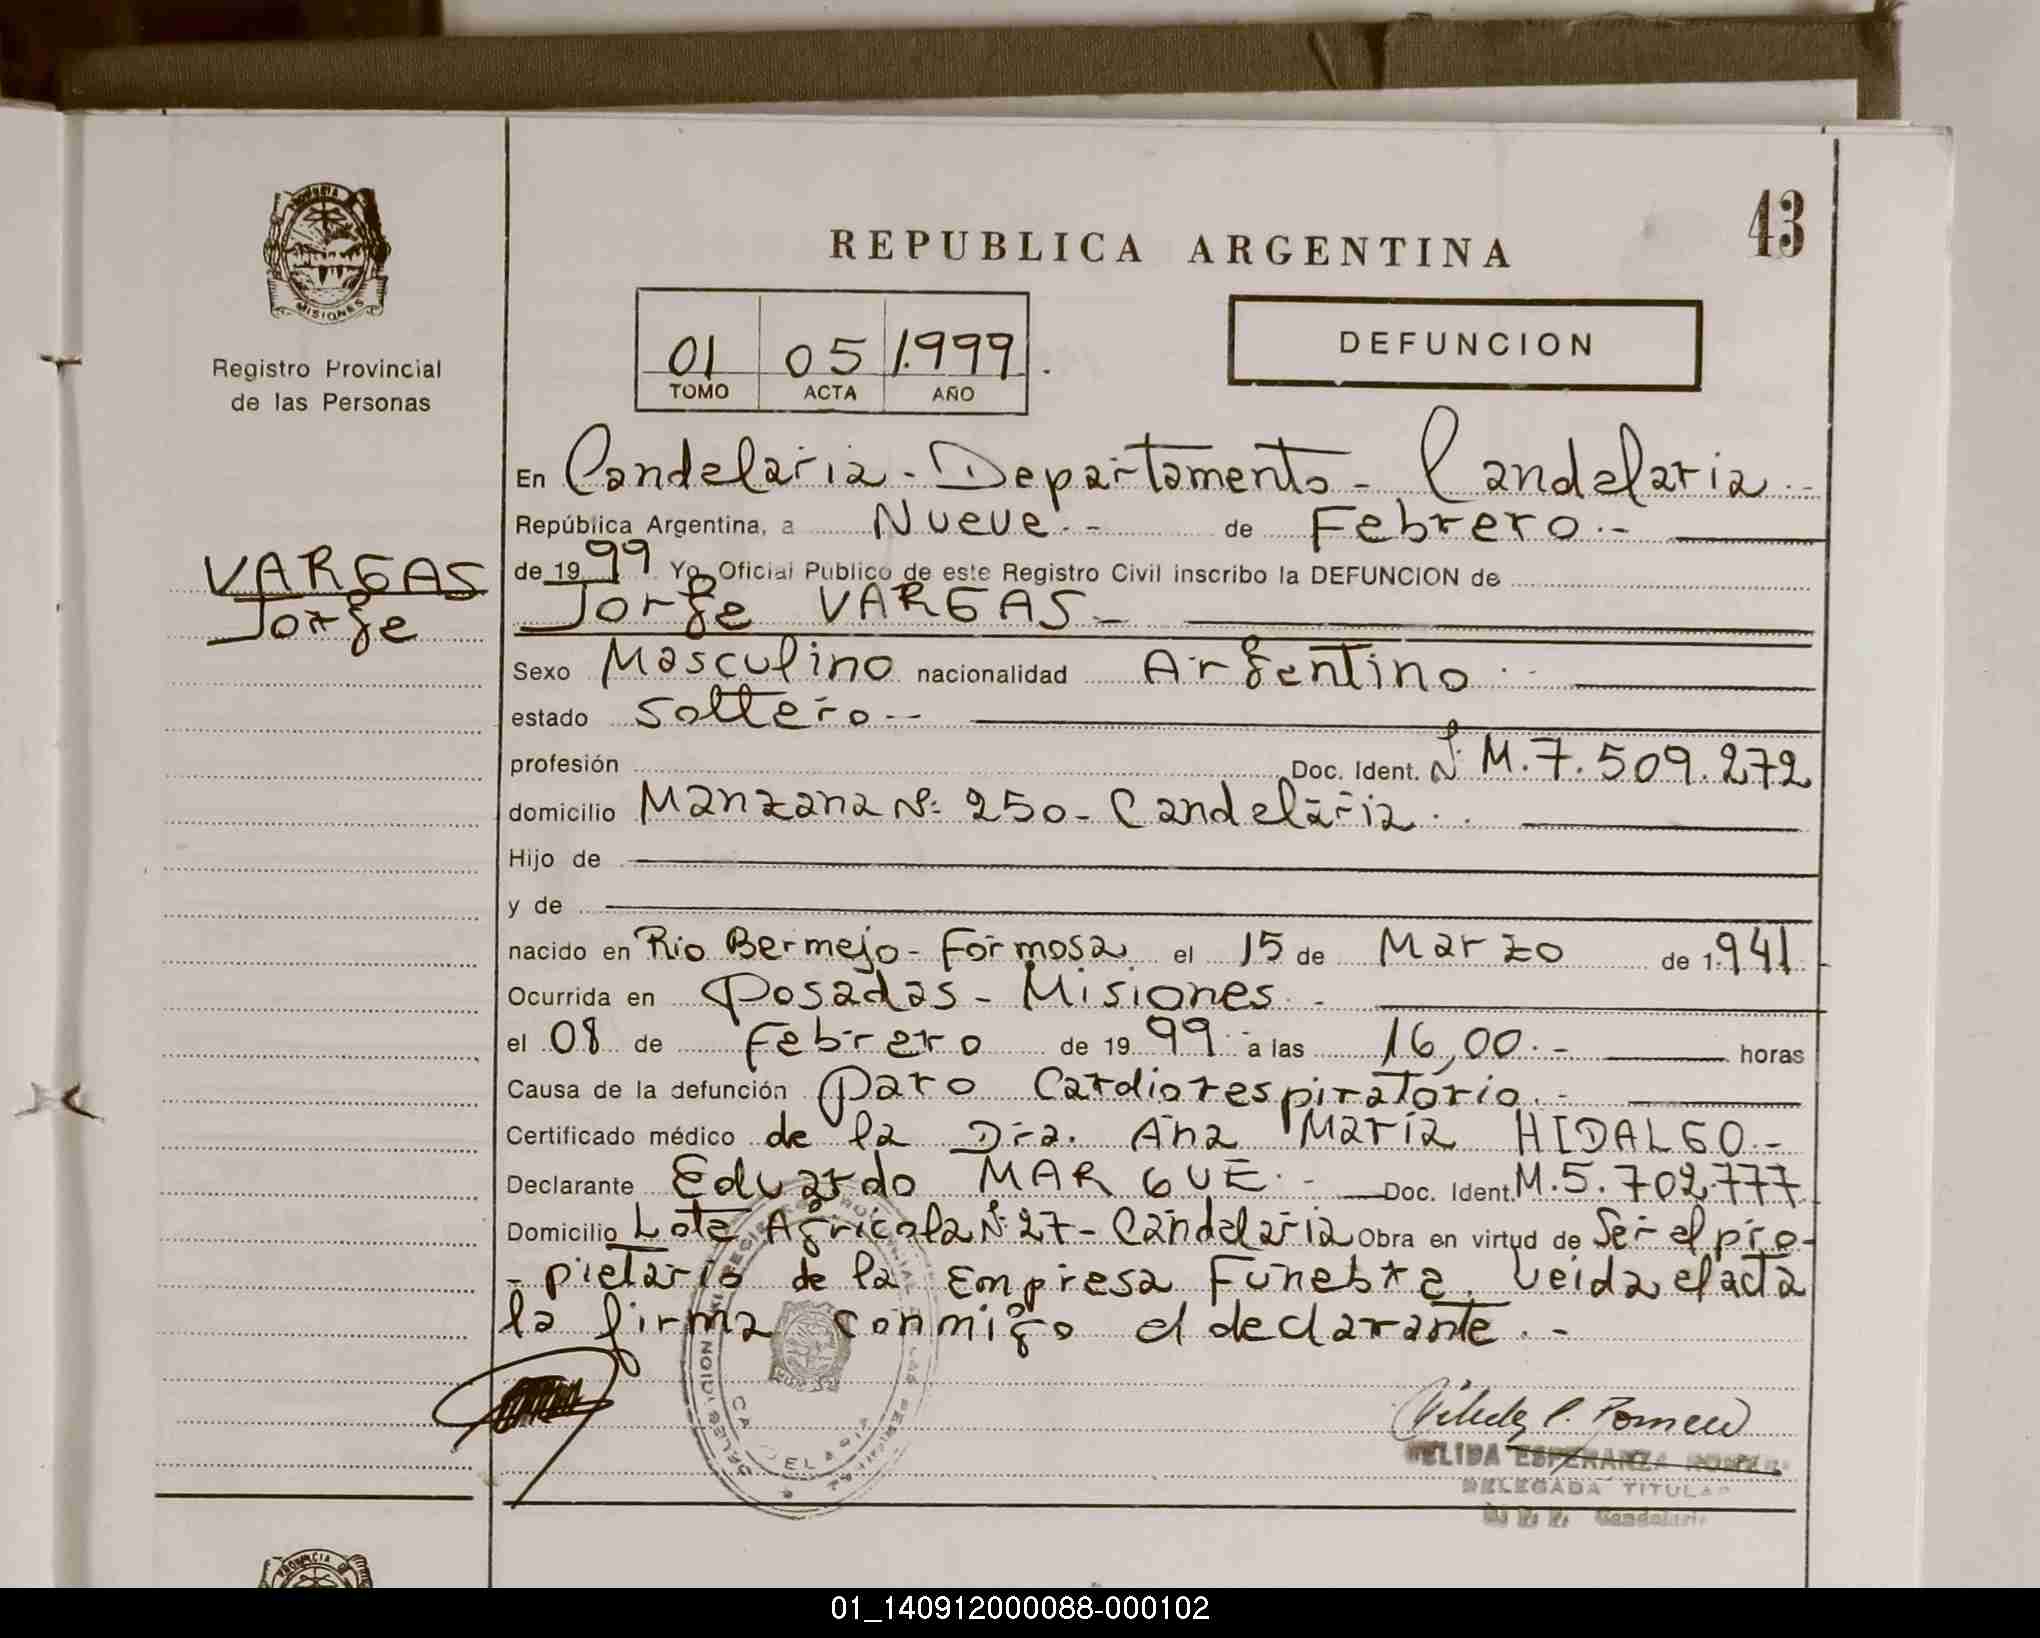 PROVINCIA
MISIONES
Registro Provincial
de las Personas
VARGAS
Jorge
43
REPUBLICA ARGENTINA
01 05 1.999
TOMO ACTA AÑO
DEFUNCION
En Candelaria - Departamento - Candelaria.-
República Argentina, a Nueve.- de Febrero.-
de 19 99 Yo, Oficial Publico de este Registro Civil inscribo la DEFUNCION de
Jorge VARGAS -
Sexo Masculino nacionalidad Argentino.-
estado Soltero.-
profesión Doc. Ident. Nº M.7.509.272
domicilio Manzana Nº 250 - Candelaria.
Hijo de
y de
nacido en Rio Bermejo - Formosa el 15 de Marzo de 1.941
Ocurrida en Posadas - Misiones.-
el 08 de Febrero de 19 99 a las 16,00.- horas
Causa de la defunción Paro Cardiorespiratorio.-
Certificado médico de la Dra. Ana María HIDALGO.-
Declarante Eduardo MARGUE.- Doc. Ident. M.5.702.777
Domicilio Lote Agrícola Nº 27 - Candelaria Obra en virtud de Ser el pro-
- pietario de la Empresa Funebre. Leida el acta
la firma conmigo el declarante.-
CANDELARIA
ESPERANZA ROMERO
DELEGADA TITULAR
Candelaria
PROVINCIA
01_140912000088-000102